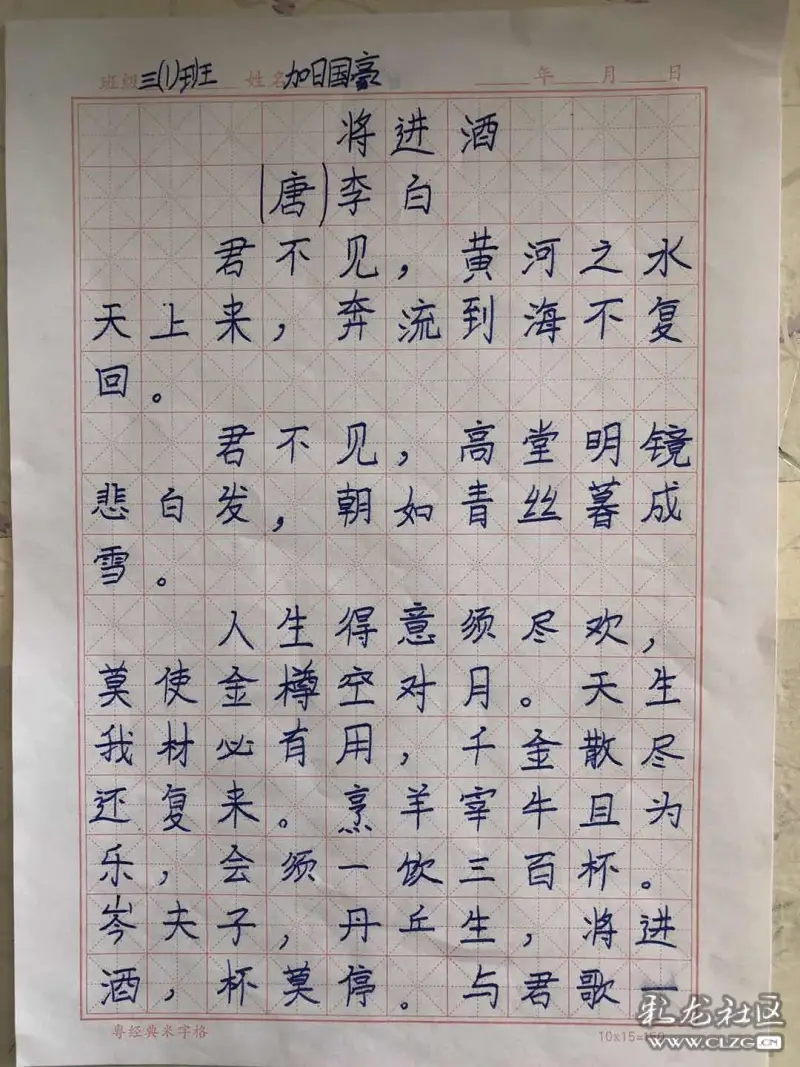 班级三(1)班 姓名加日国豪 年 月 日
将进酒
(唐)李白
君不见,黄河之水
天上来,奔流到海不复
回。
君不见,高堂明镜
悲白发,朝如青丝暮成
雪。
人生得意须尽欢,
莫使金樽空对月。天生
我材必有用,千金散尽
还复来。烹羊宰牛且为
乐,会须一饮三百杯。
岑夫子,丹丘生,将进
酒,杯莫停。与君歌一
粤经典米字格 10x15=150
龙社区
WWW.CLZG.CN